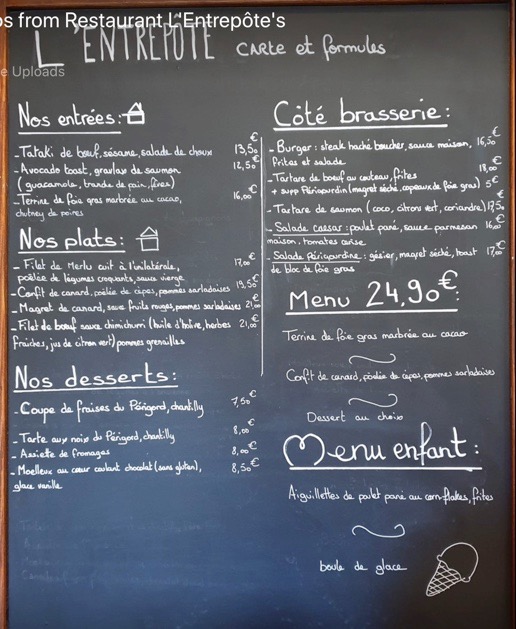 os from Restaurant L'Entrepôte's
e Uploads
L'ENTREPÔTE CARTE et formules
Nos entrées:
- Tataki de bœuf, sésame, salade de choux 13,50€
- Avocado toast, gravlax de saumon 12,50€
( guacamole, de pain, )
- Terrine de foie gras marbrée au cacao, 16,00€
chutney de poires
Nos plats:
- Filet de Merlu cuit à l'unilatérale, 17,00€
poêlée de légumes croquants, sauce vierge
- Confit de canard, poêlée de cèpes, pommes sarladaises 19,50€
- Magret de canard, sauce fruits rouges, pommes sarladaises 21,00€
- Filet de bœuf sauce chimichurri (huile d'olive, herbes 21,00€
fraîches, jus de citron vert) pommes grenailles
Nos desserts:
- Coupe de fraises du Périgord, chantilly 7,50€
- Tarte aux noix du Périgord, chantilly 8,00€
- Assiette de fromages 8,00€
- Moelleux au cœur coulant chocolat (sans gluten), 8,50€
glace vanille
Côté brasserie:
- Burger : steak haché boucher, sauce maison, 16,50€
frites et salade
- Tartare de bœuf au couteau, frites 18,00€
+ supp Périgourdin (magret séché, copeaux de foie gras) 5€
- Tartare de saumon (coco, citrons vert, coriandre) 17,50€
- Salade caesar : poulet pané, sauce parmesan 16,00€
maison, tomates cerise
- Salade Périgourdine : gésier, magret séché, toast 17,00€
de bloc de foie gras
Menu 24,90€:
Terrine de foie gras marbrée au cacao
Confit de canard, poêlée de cèpes, pommes sarladaises
Dessert au choix
Menu enfant:
Aiguillettes de poulet pané au corn-flakes, frites
boule de glace